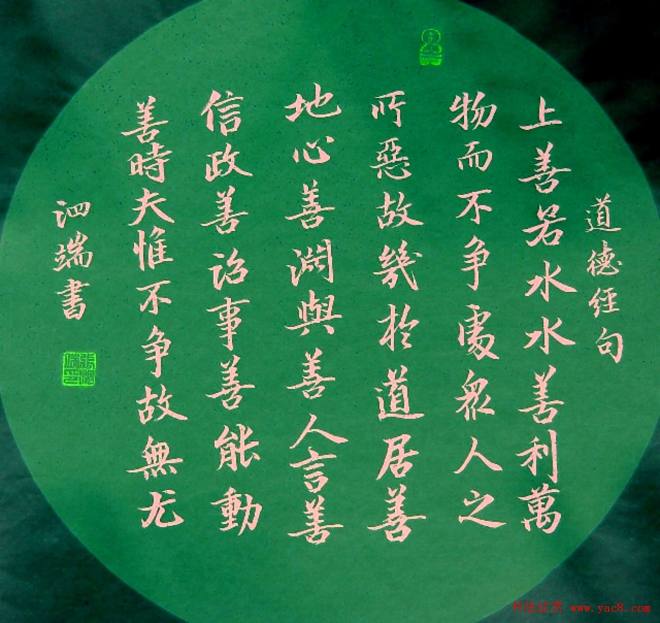 道德经句
上善若水水善利萬
物而不争處衆人之
所惡故幾於道居善
地心善渊與善人言善
信政善治事善能動
善時夫惟不争故無尤
泗端書
www.yac8.com